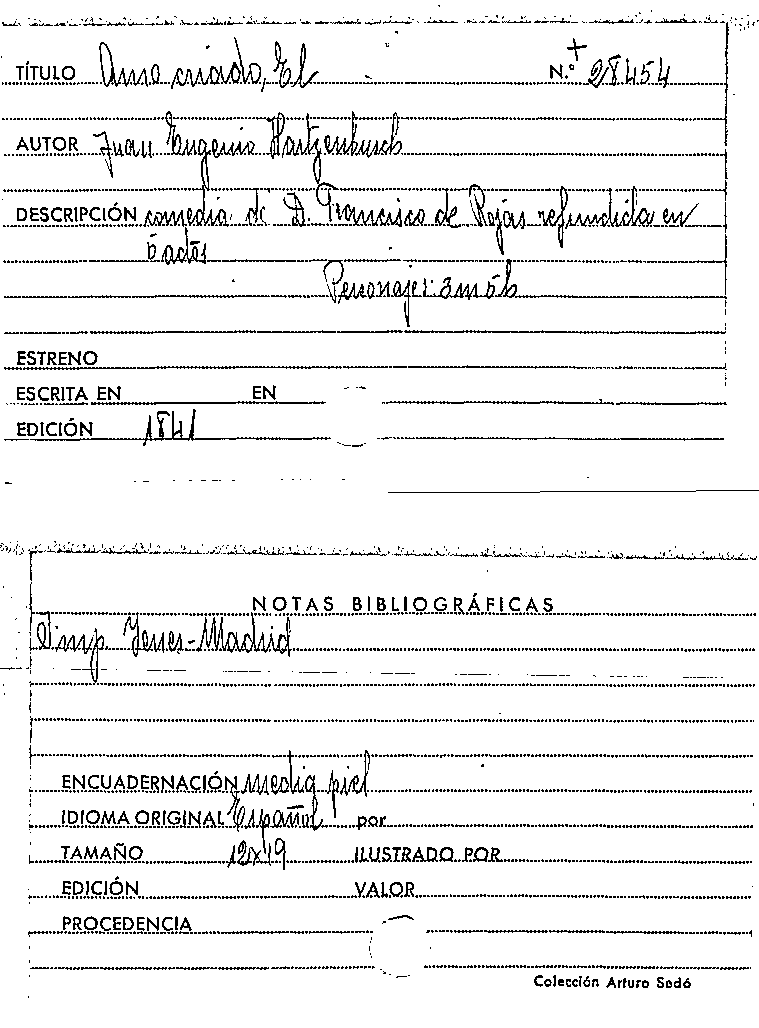 TÍTULO Amo criado, El N.º + 28454
AUTOR Juan Eugenio Hartzenbusch
DESCRIPCIÓN comedia de D. Francisco de Rojas refundida en
5 actos
Personajes: 3m 5h
ESTRENO
ESCRITA EN EN
EDICIÓN 1841
NOTAS BIBLIOGRÁFICAS
Imp. Yenes-Madrid
ENCUADERNACIÓN media piel
IDIOMA ORIGINAL Español por
TAMAÑO 12x19 ILUSTRADO POR
EDICIÓN VALOR
PROCEDENCIA
Colección Arturo Sedó